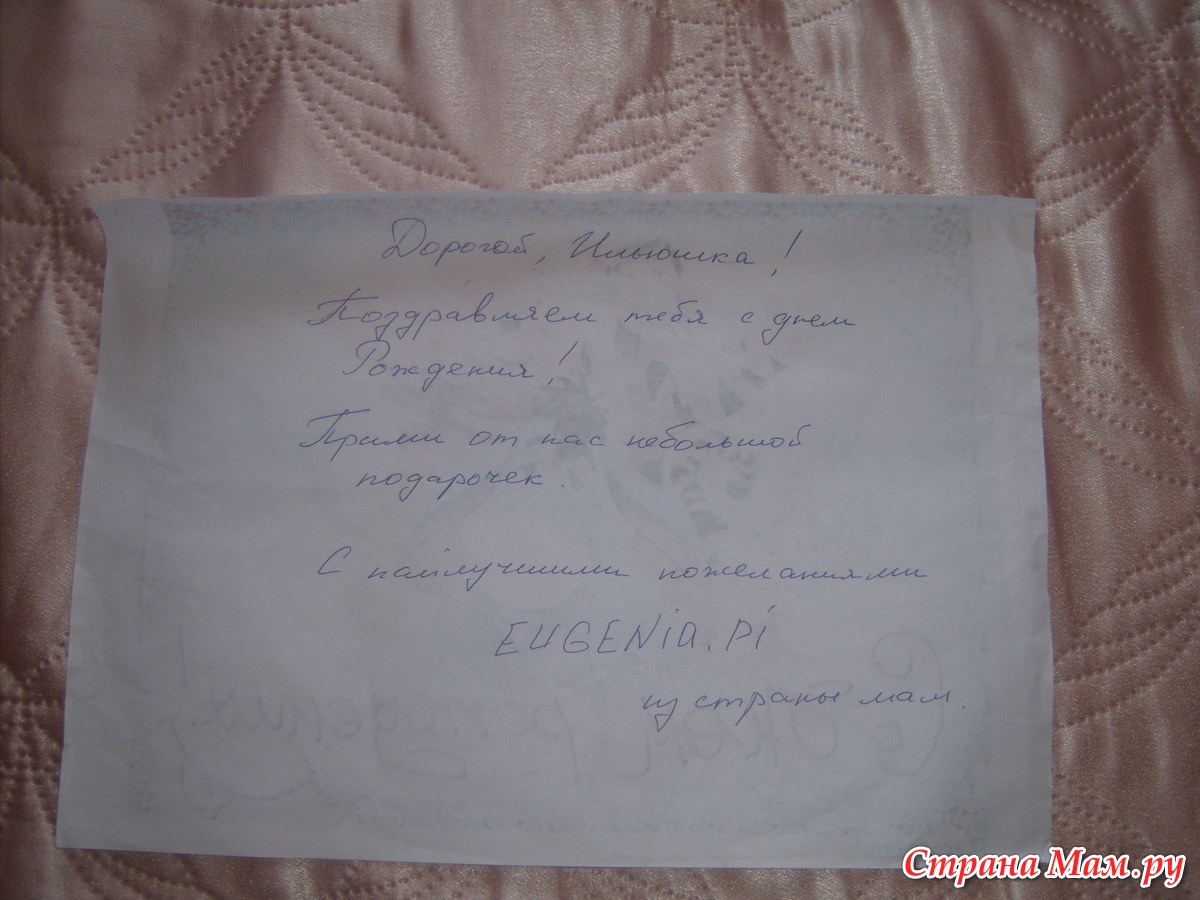 Дорогой, Ильюшка!
Поздравляем тебя с днем
Рождения!
Прими от нас небольшой
подарочек.
С найлучшими пожеланиями
EUGENIA.Pi
из страны мам.
С Днем рождения!
Страна Мам.ру